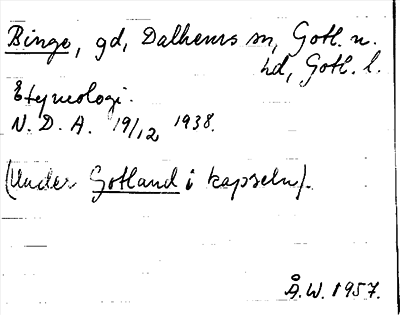 Binge, gd, Dalhems sn, Gotl. n.
hd, Gotl. l.
Etymologi.
N. D. A. 19/12 1938.
(Under Gotland i kapseln).
Å.W. 1957.